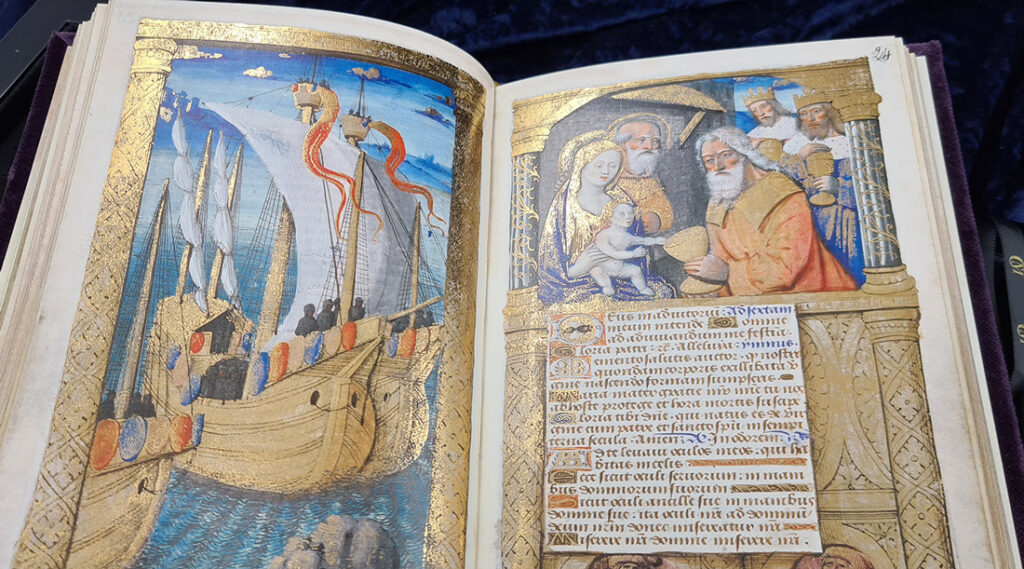 24
Deus in adiutoriu Ad sextam
meum intende Domine
ad adiuuandum me festina.
Gloria patri. Alleluia. ymnus.
Memento salutis auctor. q nostri
quondam corporis ex illibata v
gine nascendo formam sumpseris.
Maria mater gratie mie tu nos
ab hoste protege et hora mortis suscipe
Gloria tibi dne. qui natus es de
gine cum patre et sancto spu. in sempi
terna secula. Amen.
Ad te leuaui oculos meos. qui ha
bitas in celis
Ecce sicut oculi seruorum. in mani
bus dominorum suorum
Sicut oculi ancille sue in manibus
domine sue. ita oculi nri ad dominu
deum nrm donec misereatur nri
Miserere nri domine miserere nri.